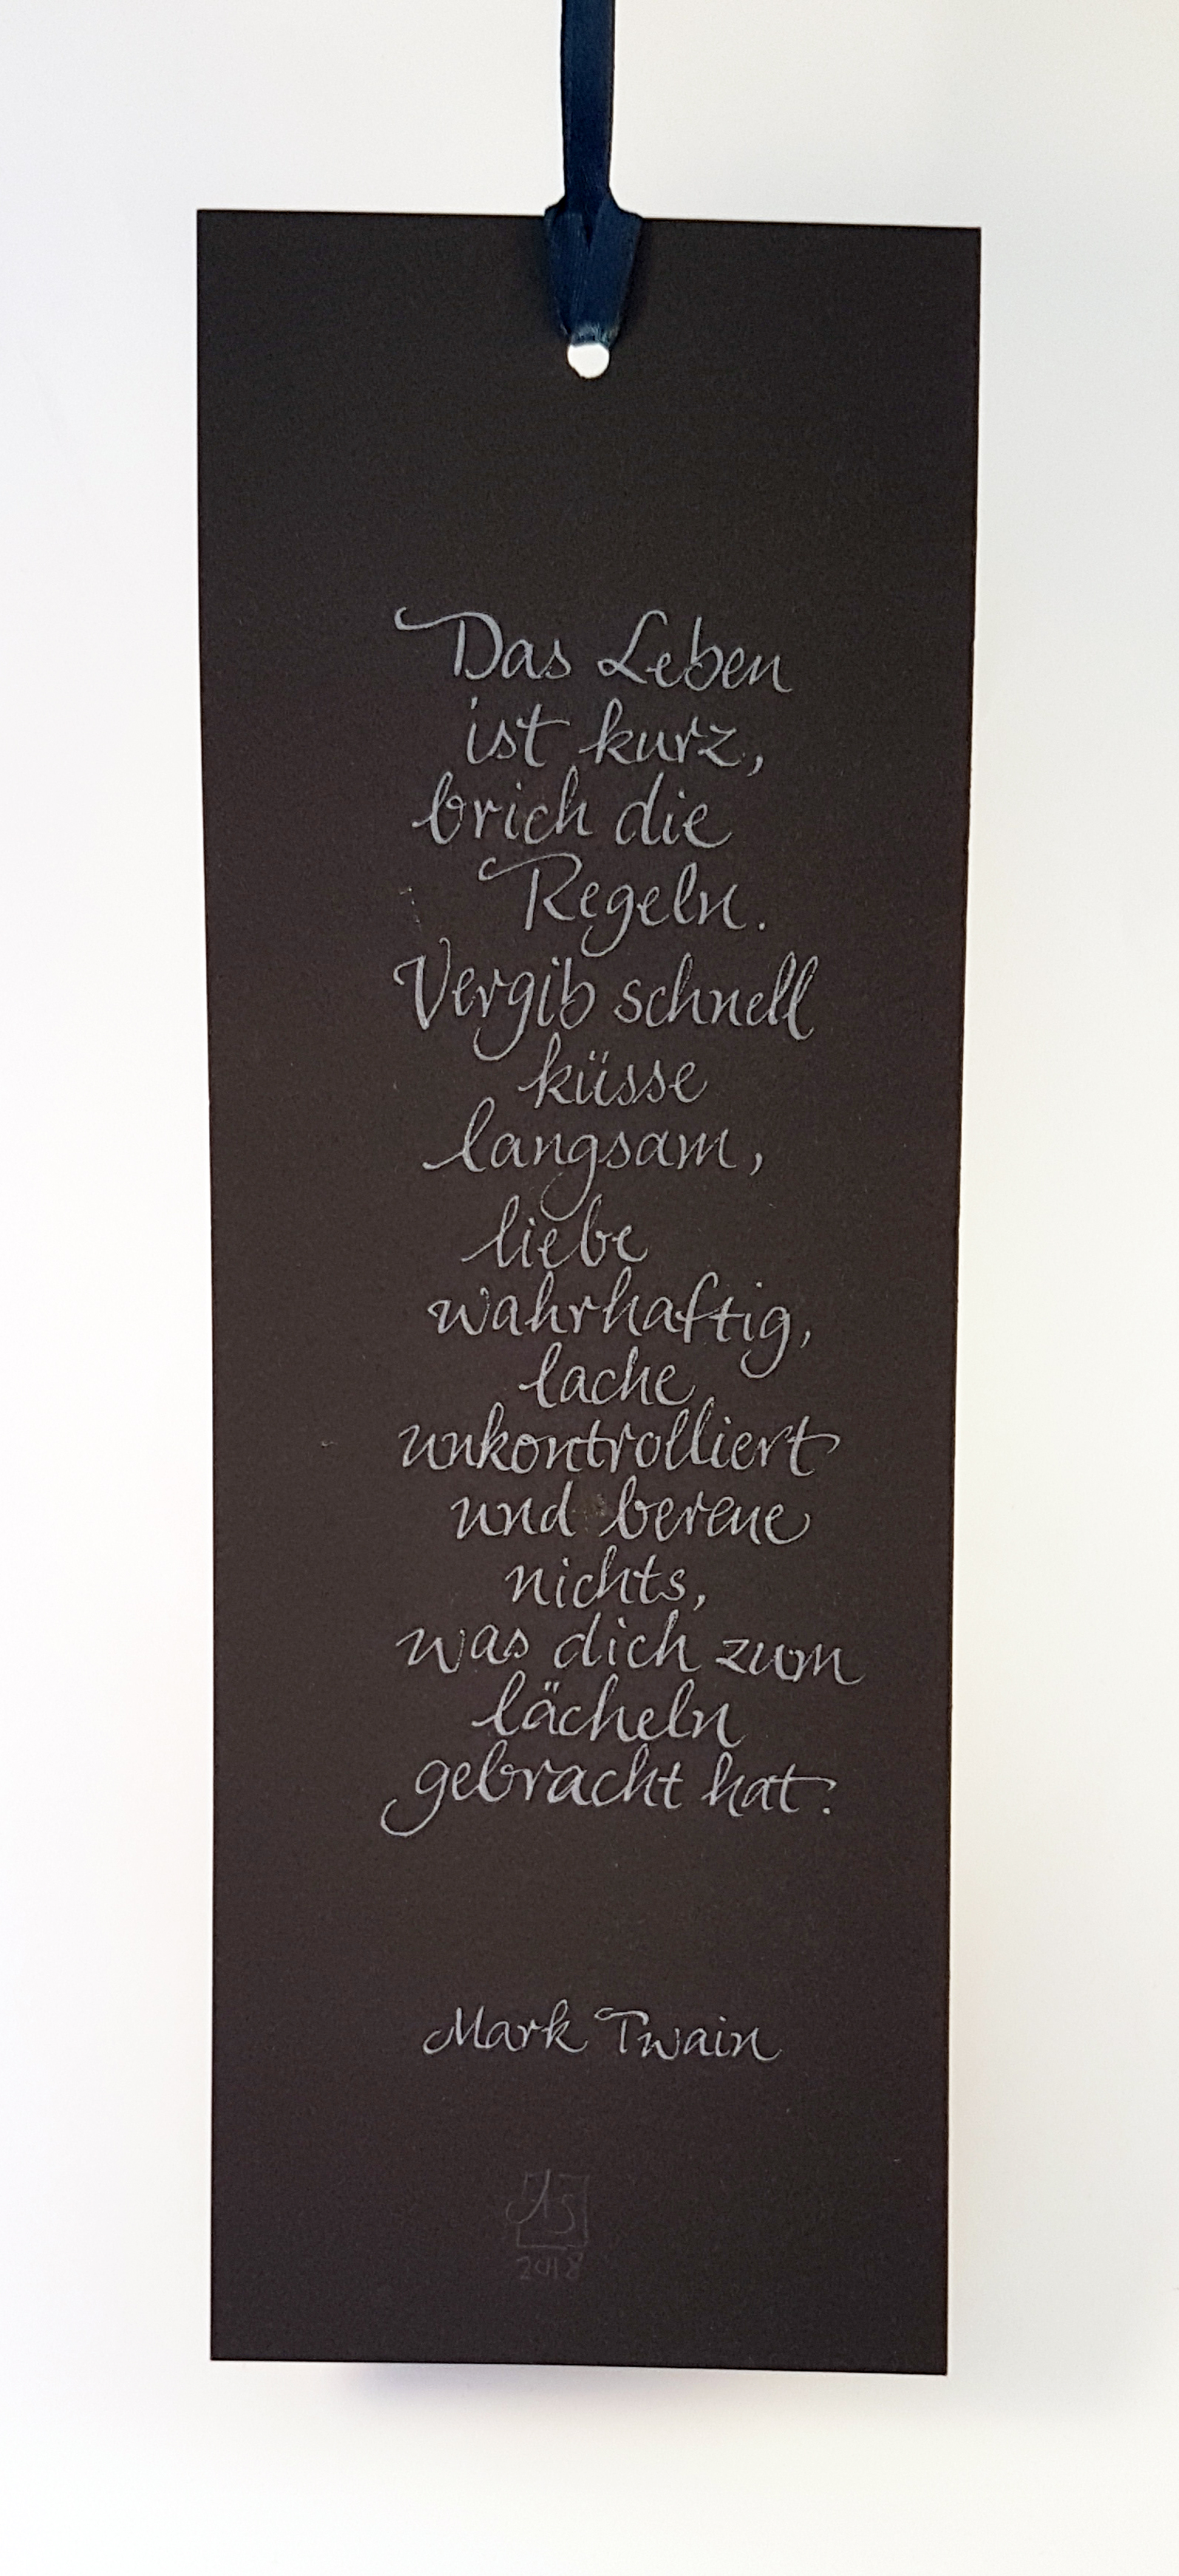 Das Leben
ist kurz,
brich die
Regeln.
Vergib schnell
küsse
langsam,
liebe
wahrhaftig,
lache
unkontrolliert
und bereue
nichts,
was dich zum
lächeln
gebracht hat.
Mark Twain
2018